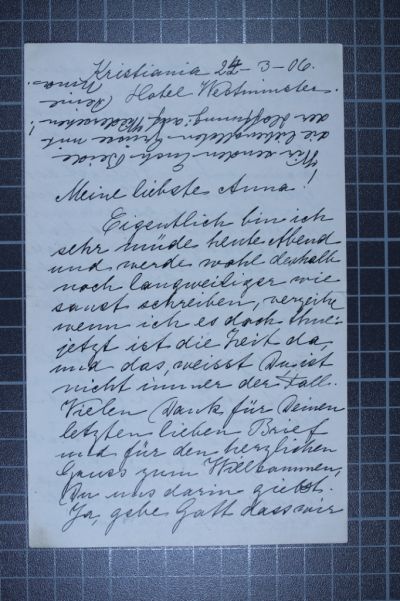 Kristiania 24-3-06.
Hotel Westminster.
Meine liebste Anna!
Eigentlich bin ich
sehr müde heute Abend
und werde wohl deshalb
noch langweiliger wie
sonst schreiben, verzeihe
wenn ich es doch thue:
jetzt ist die Zeit da,
und das, weisst Du, ist
nicht immer der Fall.
Vielen Dank für Deinen
letzten lieben Brief
und für den herzlichen
Gruss zum Willkommen,
Du uns darin giebst.
Ja, gebe Gott dass wir
Wir senden Euch Beide
die liebevollsten Grüsse mit
der Hoffnung auf Wiedersehen!
Deine
Nina.